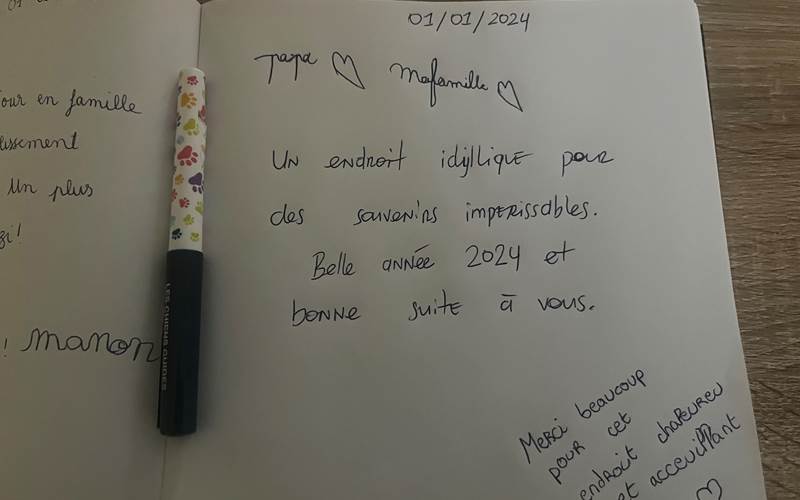 our en famille
issement
un plus
! manon
LES CHIENS GUIDES
01/01/2024
papa ♡ Mafamille ♡
Un endroit idyllique pour
des souvenirs imperissables.
Belle année 2024 et
bonne suite à vous.
Merci beaucoup
pour cet
endroit chaleureu
et acceuillant
♡